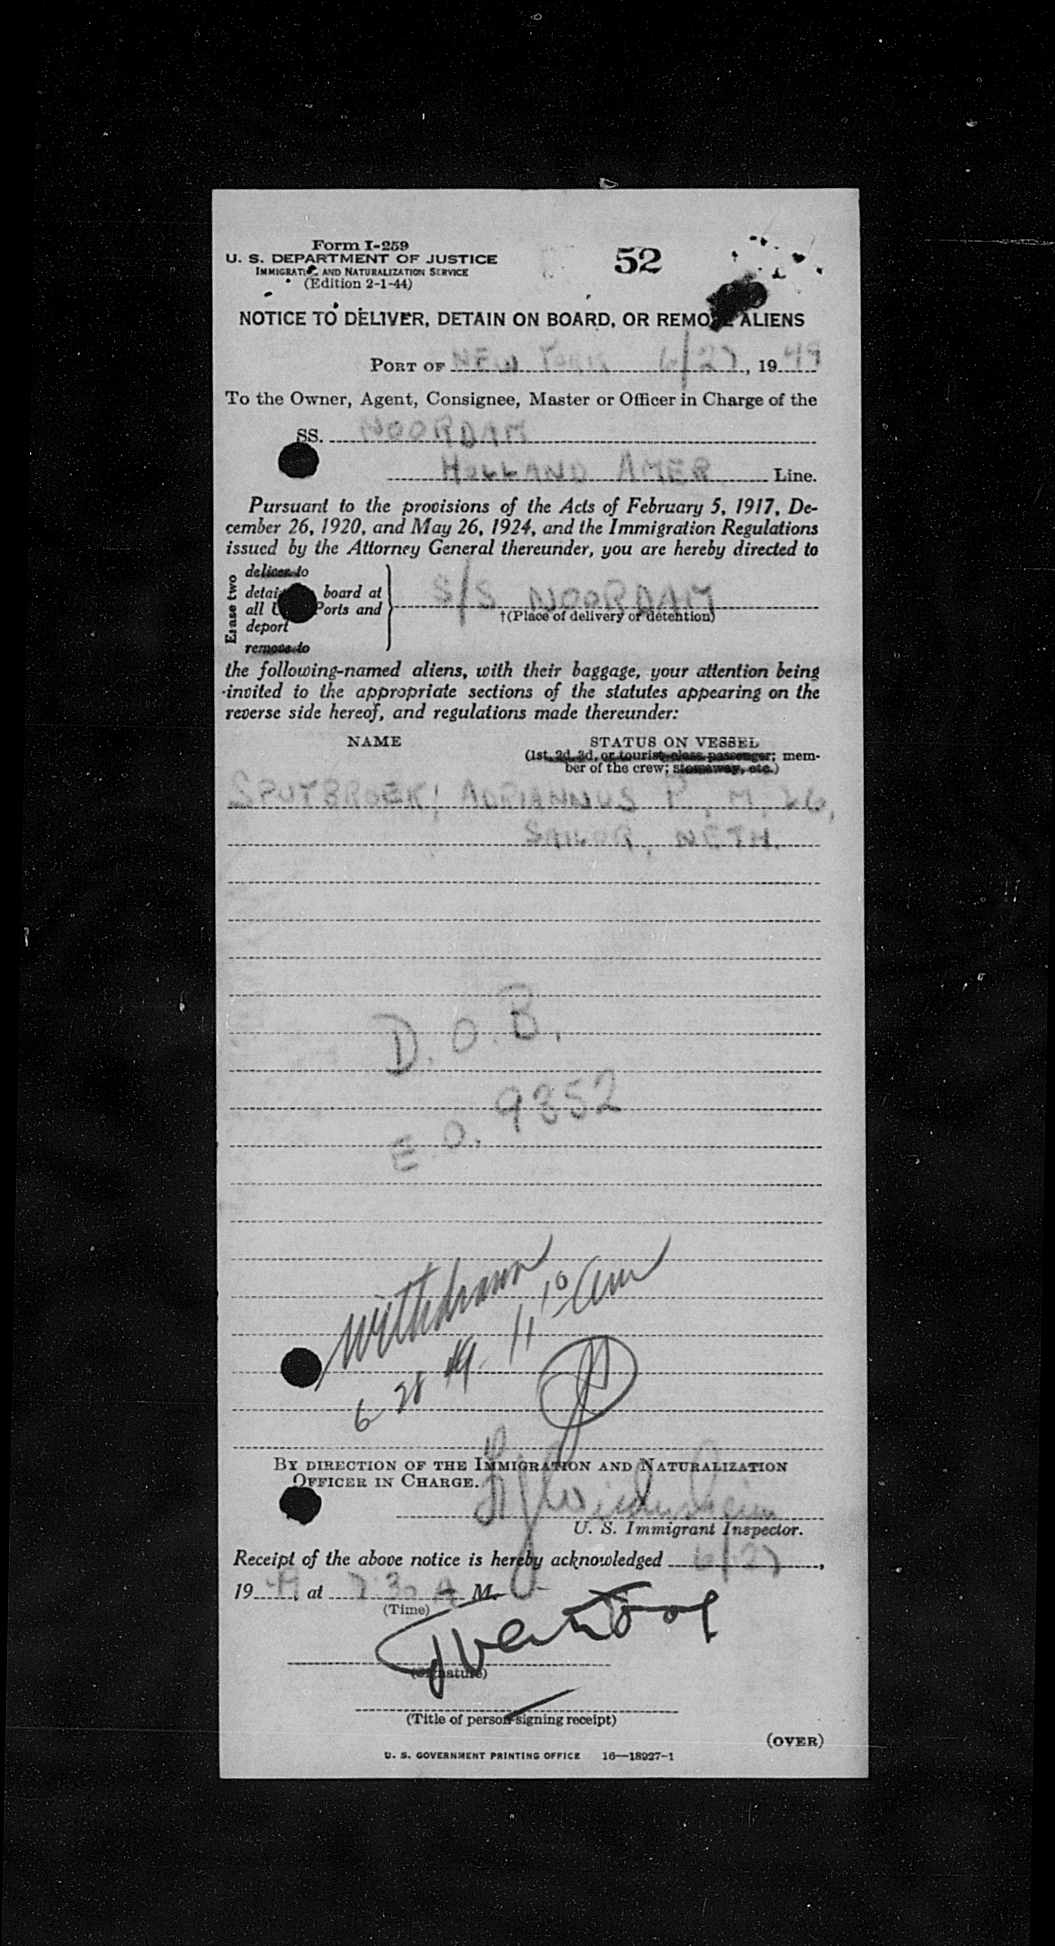 Form I-259
U. S. DEPARTMENT OF JUSTICE
IMMIGRATION AND NATURALIZATION SERVICE
(Edition 2-1-44)
52
NOTICE TO DELIVER, DETAIN ON BOARD, OR REMOVE ALIENS
PORT OF NEW YORK 6/27, 1949
To the Owner, Agent, Consignee, Master or Officer in Charge of the
SS. NOORDAM
HOLLAND AMER Line.
Pursuant to the provisions of the Acts of February 5, 1917, De-
cember 26, 1920, and May 26, 1924, and the Immigration Regulations
issued by the Attorney General thereunder, you are hereby directed to
Erase two
deliver to
detain board at
all Ports and
deport
remove to
S/S NOORDAM
†(Place of delivery or detention)
the following-named aliens, with their baggage, your attention being
invited to the appropriate sections of the statutes appearing on the
reverse side hereof, and regulations made thereunder:
NAME
STATUS ON VESSEL
(1st, 2d, 3d, or tourist-class passenger; mem-
ber of the crew; stowaway, etc.)
ADRIANNUS P, M, 26,
SAILOR, NETH.
D.O.B.
E.O. 9352
Withdrawn
6 28 49 11 10 am
BY DIRECTION OF THE IMMIGRATION AND NATURALIZATION
OFFICER IN CHARGE.
U. S. Immigrant Inspector.
Receipt of the above notice is hereby acknowledged 6/27,
1949, at 7:30 A M.
(Time)
(Signature)
(Title of person signing receipt)
(OVER)
U. S. GOVERNMENT PRINTING OFFICE 16—18927-1